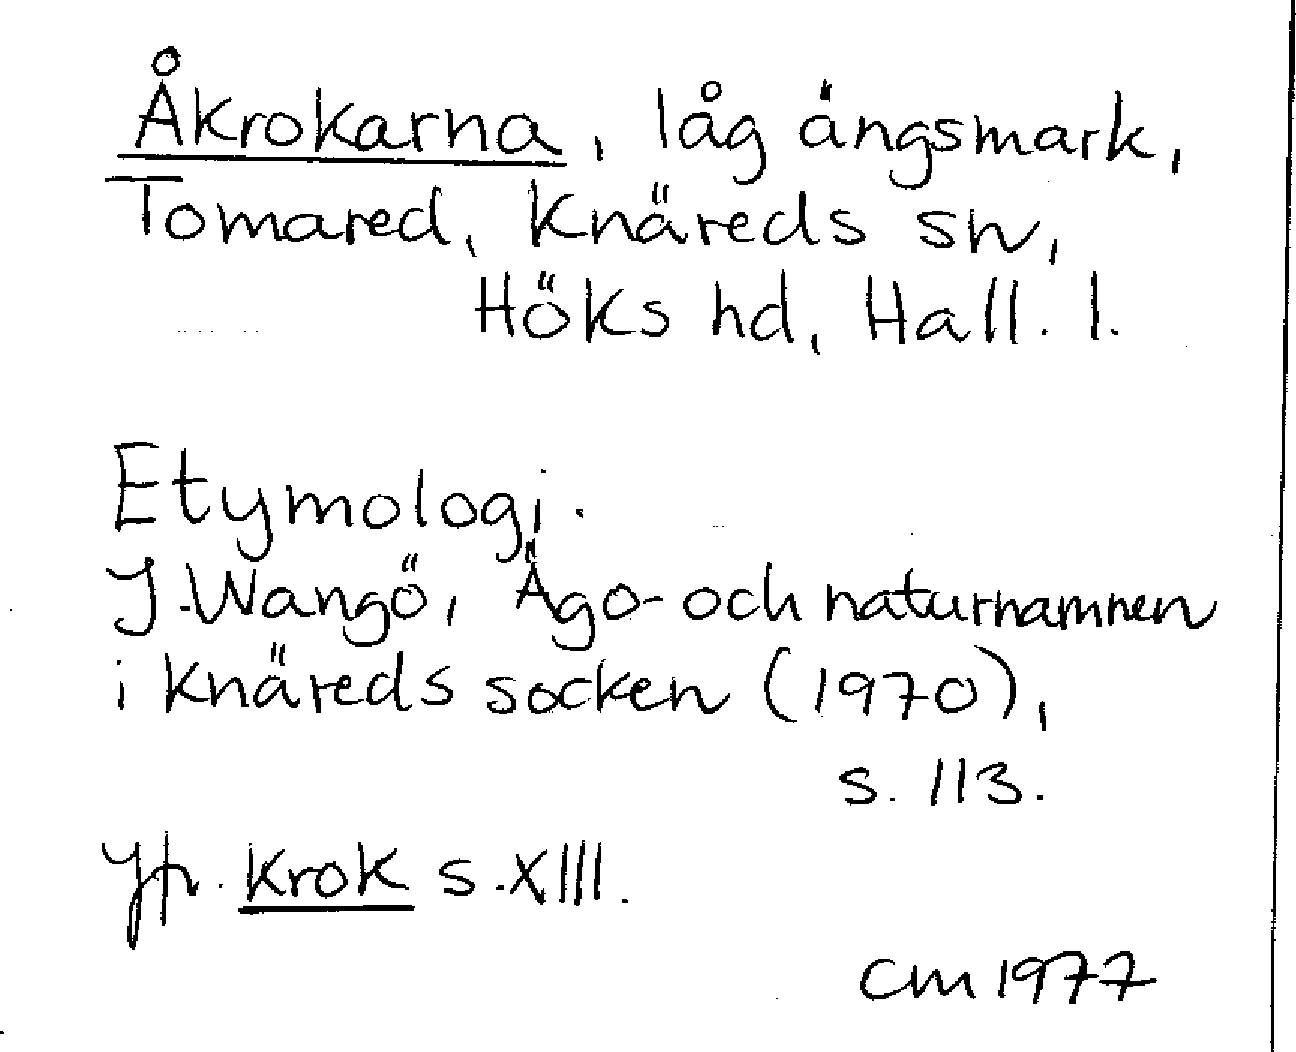 Åkrokarna, låg ängsmark,
Tomared, Knäreds sn,
Höks hd, Hall. l.
Etymologi.
J. Wangö, Ägo- och naturnamnen
i Knäreds socken (1970),
s. 113.
Jfr. Krok s. XIII.
CM 1977